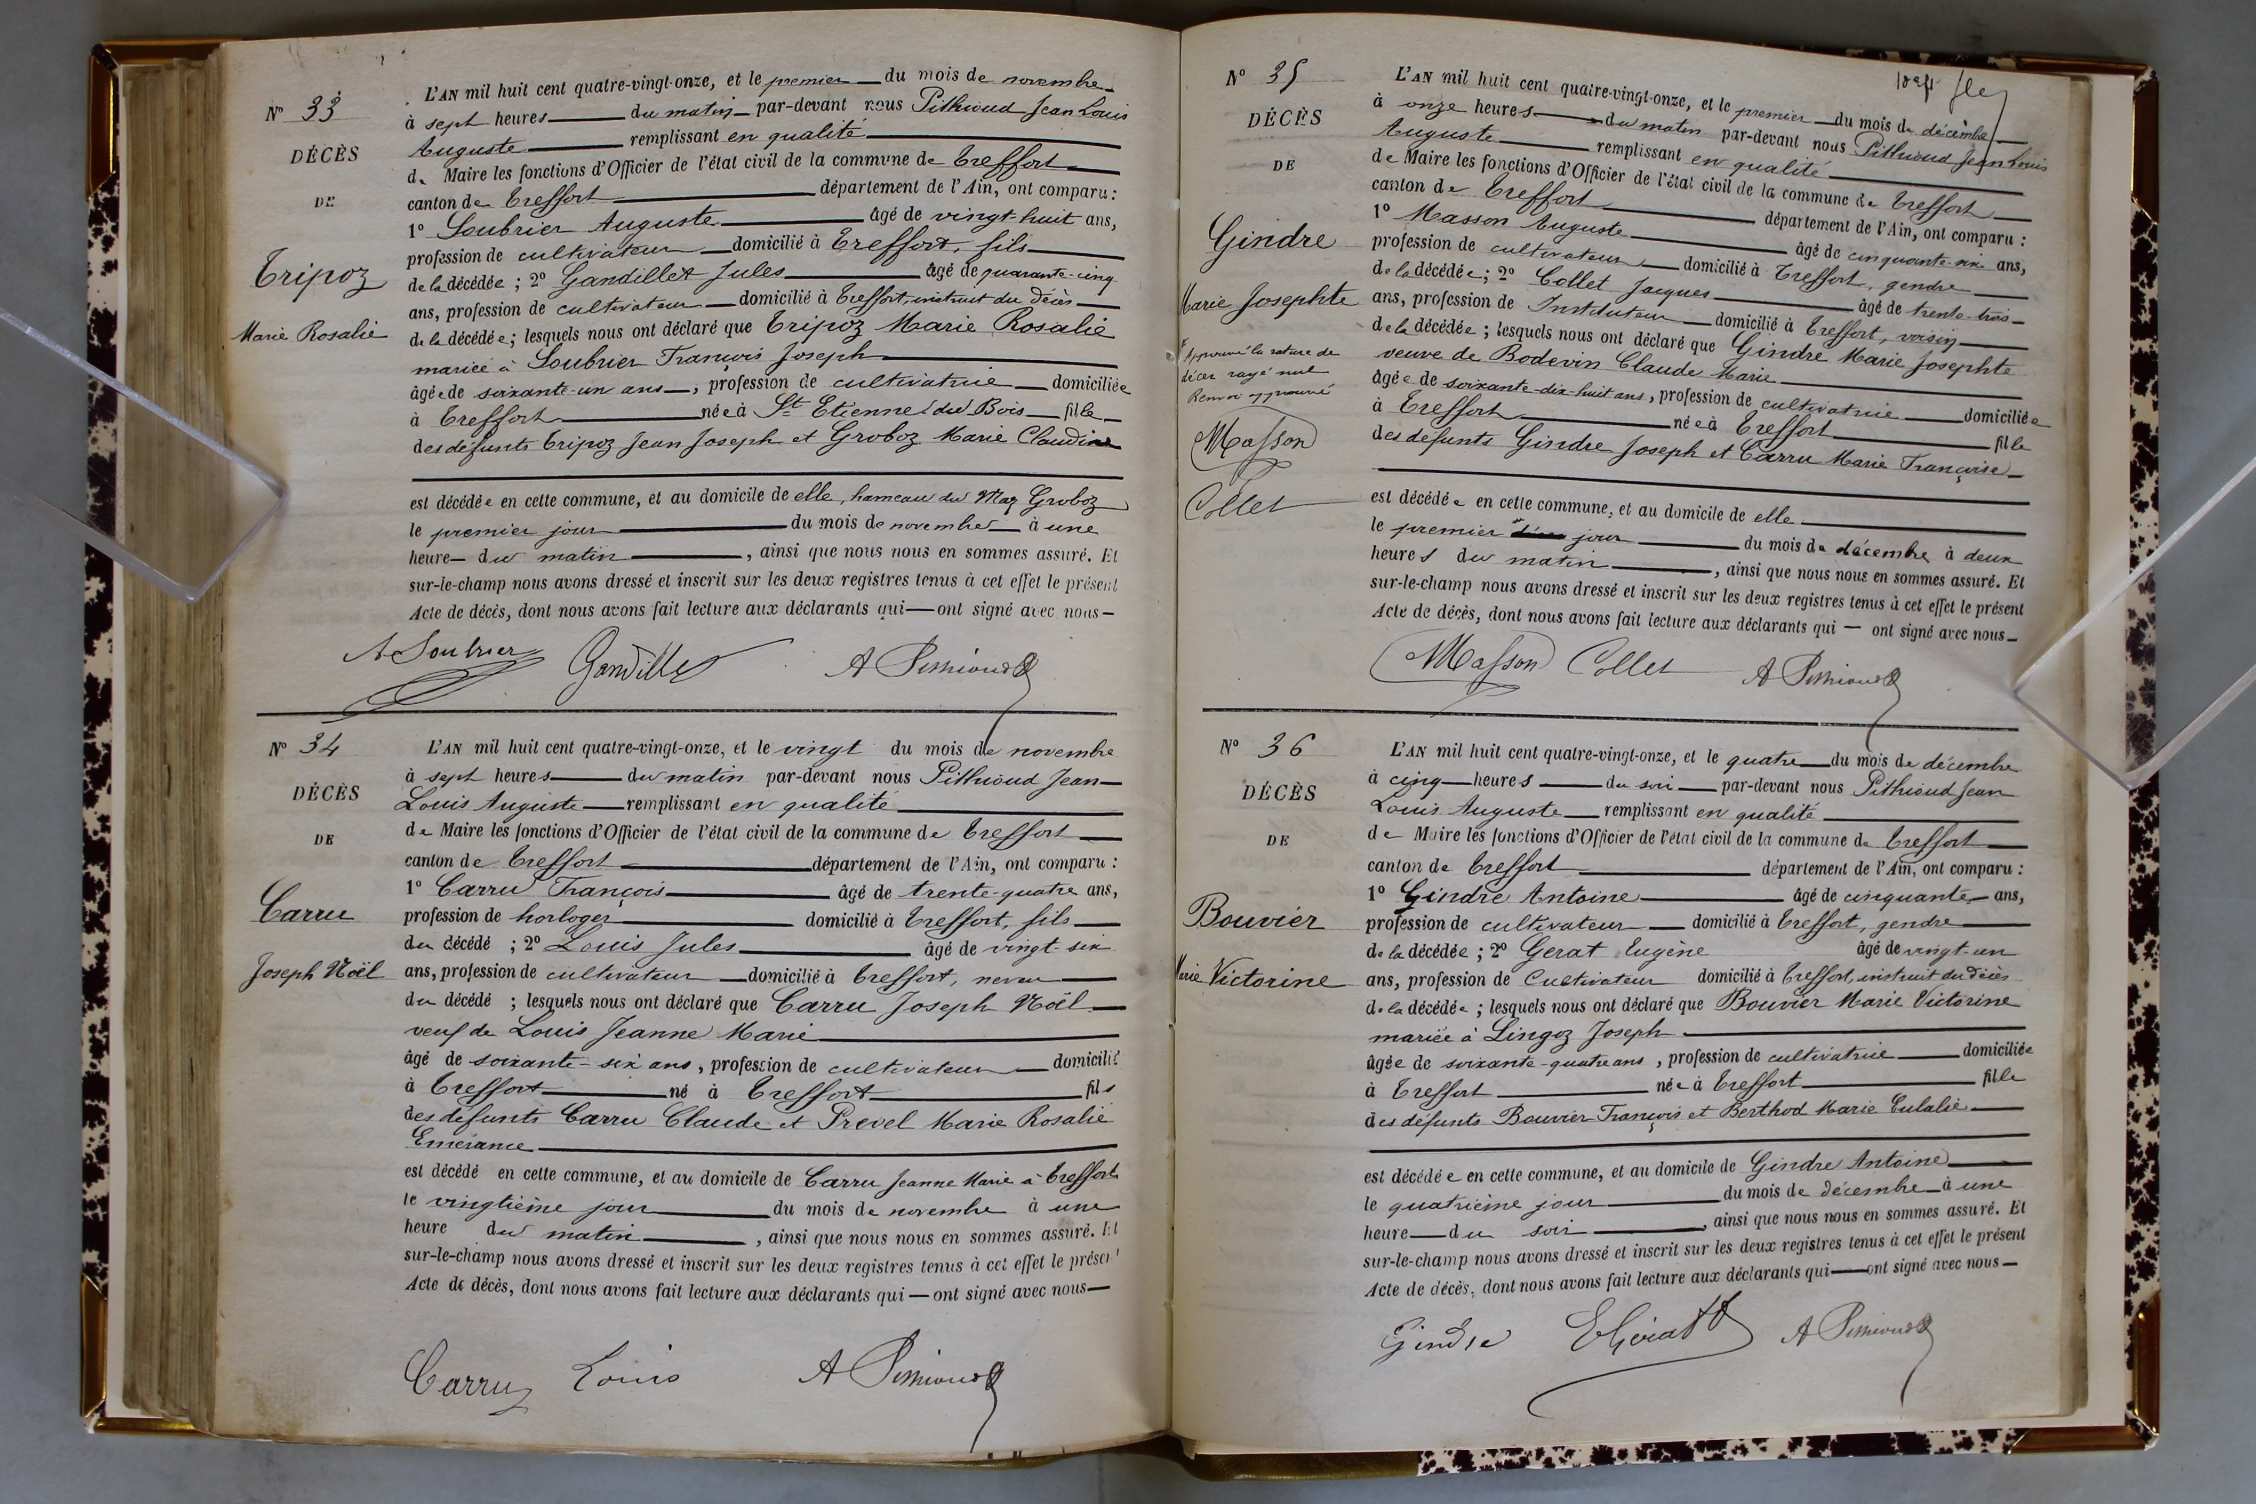 N° 33
DÉCÈS
DE
Tripoz
Marie Rosalie
L'AN mil huit cent quatre-vingt-onze, et le premier du mois de novembre
à sept heures du matin par-devant nous Pithioud Jean Louis
Auguste remplissant en qualité
de Maire les fonctions d'Officier de l'état civil de la commune de Treffort
canton de Treffort département de l'Ain, ont comparu :
1° Soubrier Auguste âgé de vingt-huit ans,
profession de cultivateur domicilié à Treffort, fils
de la décédée ; 2° Gandillet Jules âgé de quarante-cinq
ans, profession de cultivateur domicilié à Treffort, instruit du décès
de la décédée ; lesquels nous ont déclaré que Tripoz Marie Rosalie
mariée à Soubrier François Joseph
âgée de soixante-un ans, profession de cultivatrice domiciliée
à Treffort née à St Etienne du Bois fille
des défunts Tripoz Jean Joseph et Groboz Marie Claudine
est décédée en cette commune, et au domicile de elle, hameau du Maz Groboz
le premier jour du mois de novembre à une
heure du matin, ainsi que nous nous en sommes assuré. Et
sur-le-champ nous avons dressé et inscrit sur les deux registres tenus à cet effet le présent
Acte de décès, dont nous avons fait lecture aux déclarants qui ont signé avec nous
A Soubrier Gandillet A Pithioud
N° 34
DÉCÈS
DE
Carru
Joseph Noël
L'AN mil huit cent quatre-vingt-onze, et le vingt du mois de novembre
à sept heures du matin par-devant nous Pithioud Jean
Louis Auguste remplissant en qualité
de Maire les fonctions d'Officier de l'état civil de la commune de Treffort
canton de Treffort département de l'Ain, ont comparu :
1° Carru François âgé de trente-quatre ans,
profession de horloger domicilié à Treffort, fils
du décédé ; 2° Louis Jules âgé de vingt-six
ans, profession de cultivateur domicilié à Treffort, neveu
du décédé ; lesquels nous ont déclaré que Carru Joseph Noël
veuf de Louis Jeanne Marie
âgé de soixante-six ans, profession de cultivateur domicilié
à Treffort né à Treffort fils
des défunts Carru Claude et Prevel Marie Rosalie
Emérance
est décédé en cette commune, et au domicile de Carru Jeanne Marie à Treffort
le vingtième jour du mois de novembre à une
heure du matin, ainsi que nous nous en sommes assuré. Et
sur-le-champ nous avons dressé et inscrit sur les deux registres tenus à cet effet le présent
Acte de décès, dont nous avons fait lecture aux déclarants qui ont signé avec nous
Carru Louis A Pithioud
N° 35
DÉCÈS
DE
Gindre
Marie Josephte
Approuvé la rature de
décer rayé nul
Renvoi approuvé
Masson
Collet
L'AN mil huit cent quatre-vingt-onze, et le premier du mois de décembre
à onze heures du matin par-devant nous Pithioud Jean Louis
Auguste remplissant en qualité
de Maire les fonctions d'Officier de l'état civil de la commune de Treffort
canton de Treffort département de l'Ain, ont comparu :
1° Masson Auguste âgé de cinquante-six ans,
profession de cultivateur domicilié à Treffort, gendre
de la décédée ; 2° Collet Jacques âgé de trente-trois
ans, profession de Instituteur domicilié à Treffort, voisin
de la décédée ; lesquels nous ont déclaré que Gindre Marie Josephte
veuve de Bodevin Claude Marie
âgée de soixante-dix-huit ans, profession de cultivatrice domiciliée
à Treffort née à Treffort fille
des défunts Gindre Joseph et Carru Marie Françoise
est décédée en cette commune, et au domicile de elle
le premier jour du mois de décembre à deux
heures du matin, ainsi que nous nous en sommes assuré. Et
sur-le-champ nous avons dressé et inscrit sur les deux registres tenus à cet effet le présent
Acte de décès, dont nous avons fait lecture aux déclarants qui ont signé avec nous
Masson Collet A Pithioud
N° 36
DÉCÈS
DE
Bouvier
Marie Victorine
L'AN mil huit cent quatre-vingt-onze, et le quatre du mois de décembre
à cinq heures du soir par-devant nous Pithioud Jean
Louis Auguste remplissant en qualité
de Maire les fonctions d'Officier de l'état civil de la commune de Treffort
canton de Treffort département de l'Ain, ont comparu :
1° Gindre Antoine âgé de cinquante ans,
profession de cultivateur domicilié à Treffort, gendre
de la décédée ; 2° Gerat Eugène âgé de vingt-un
ans, profession de Cultivateur domicilié à Treffort, instruit du décès
de la décédée ; lesquels nous ont déclaré que Bouvier Marie Victorine
mariée à Lingoz Joseph
âgée de soixante-quatre ans, profession de cultivatrice domiciliée
à Treffort née à Treffort fille
des défunts Bouvier François et Berthod Marie Eulalie
est décédée en cette commune, et au domicile de Gindre Antoine
le quatrième jour du mois de décembre à une
heure du soir, ainsi que nous nous en sommes assuré. Et
sur-le-champ nous avons dressé et inscrit sur les deux registres tenus à cet effet le présent
Acte de décès, dont nous avons fait lecture aux déclarants qui ont signé avec nous
Gindre E Gérat A Pithioud